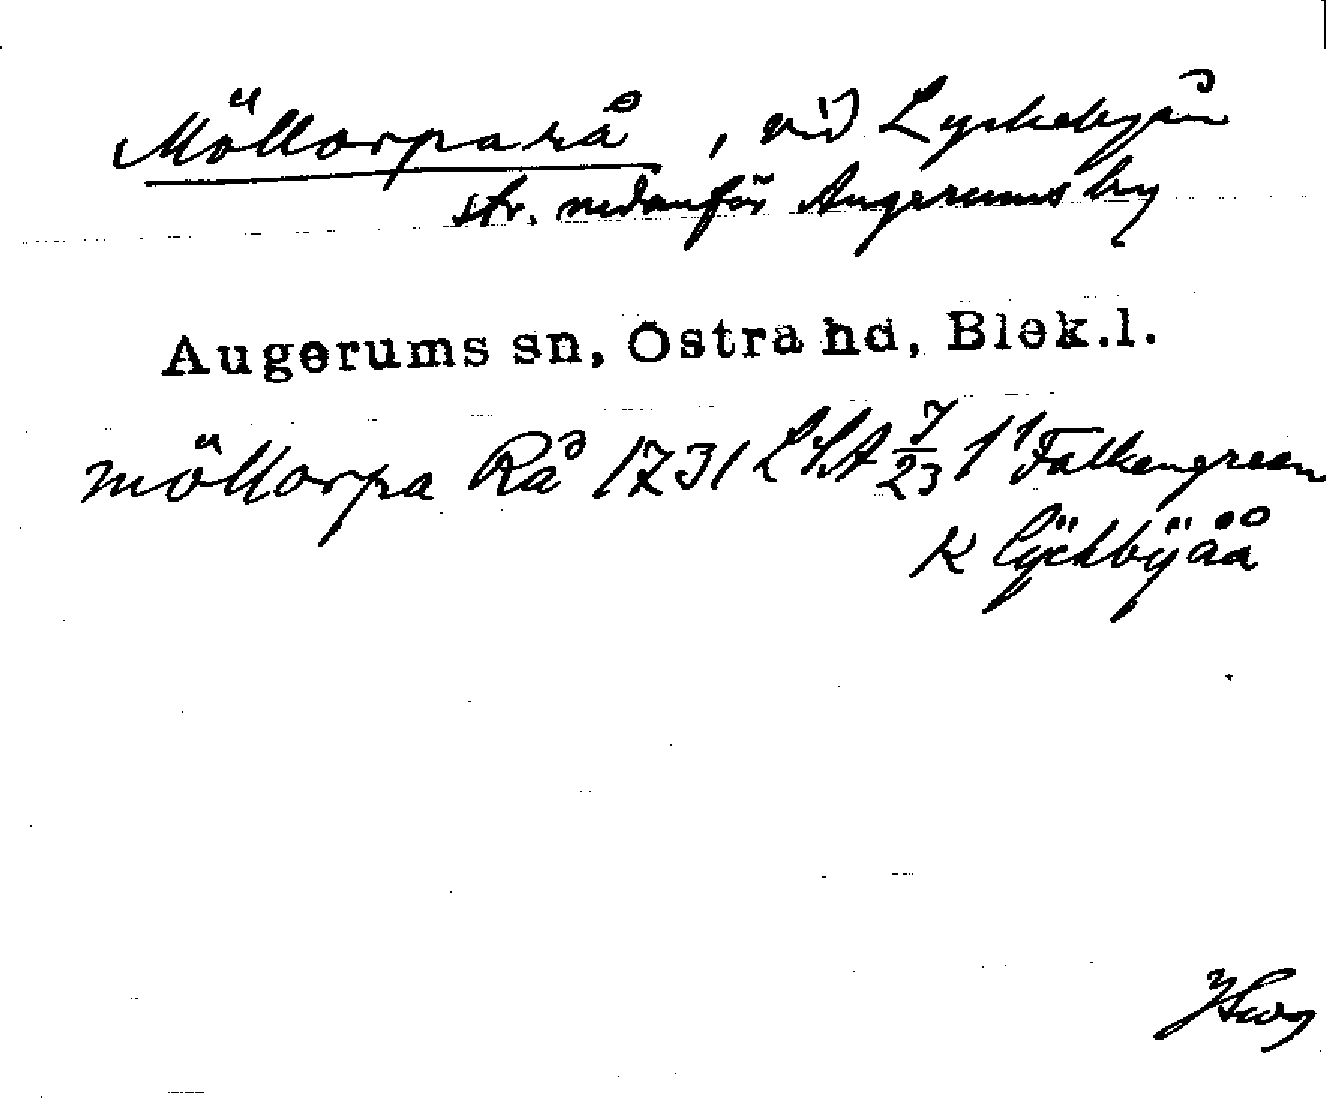 Möllorparå, vid Lyckebyån
str. nedanför Augerums by
Augerums sn, Östra hd, Blek.l.
Möllorpa Rå 1731 LSA 7/23 1 Falkengreen
K lÿckbÿåå